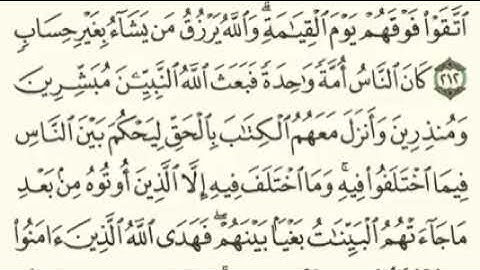 ٱتَّقَوۡاْ فَوۡقَهُمۡ يَوۡمَ ٱلۡقِيَٰمَةِۗ وَٱللَّهُ يَرۡزُقُ مَن يَشَآءُ بِغَيۡرِ حِسَابٖ
٢١٢ كَانَ ٱلنَّاسُ أُمَّةٗ وَٰحِدَةٗ فَبَعَثَ ٱللَّهُ ٱلنَّبِيِّـۧنَ مُبَشِّرِينَ
وَمُنذِرِينَ وَأَنزَلَ مَعَهُمُ ٱلۡكِتَٰبَ بِٱلۡحَقِّ لِيَحۡكُمَ بَيۡنَ ٱلنَّاسِ
فِيمَا ٱخۡتَلَفُواْ فِيهِۚ وَمَا ٱخۡتَلَفَ فِيهِ إِلَّا ٱلَّذِينَ أُوتُوهُ مِنۢ بَعۡدِ
مَا جَآءَتۡهُمُ ٱلۡبَيِّنَٰتُ بَغۡيَۢا بَيۡنَهُمۡۖ فَهَدَى ٱللَّهُ ٱلَّذِينَ ءَامَنُواْ